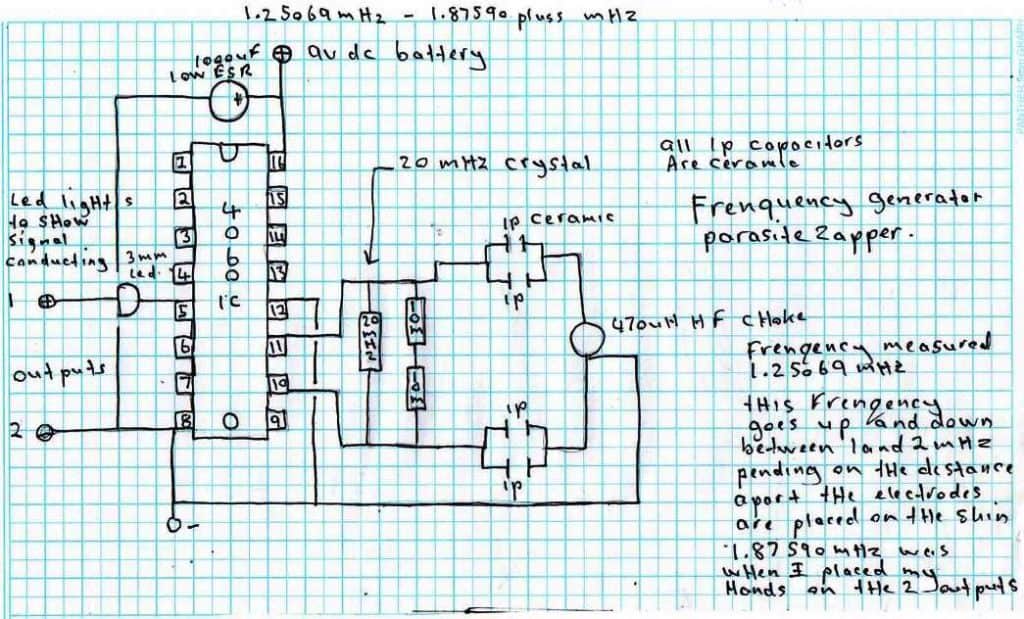 1.25069mHz - 1.87590 pluss mHz
1000uF
low ESR
+
9v dc battery
20 mHz crystal
all 1p capacitors
Are ceramic
Frenquency generator
parasite Zapper.
1p ceramic
1p
Led lights
to SHow
signal
conducting
3mm
Led.
1
2
3
4
5
6
7
8
4
0
6
0
IC
O
16
15
14
13
12
11
10
9
20
mHz
10m
10m
470uH HF cHoke
Frengency measured
1.25069 mHz
tHis Frengency
goes up and down
between 1 and 2 mHz
pending on tHe distance
apart tHe electrodes
are placed on tHe skin
1.87590 mHz was
wHen I placed my
Hands on tHe 2 outputs
1 +
outputs
2 -
1p
1p
-